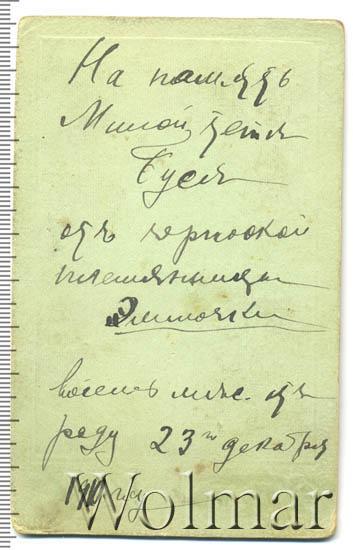 На память
Милой тетя
Буся
отъ
племянницы
Эммочки
восемь мѣс. отъ
роду 23го декабря
Wolmar